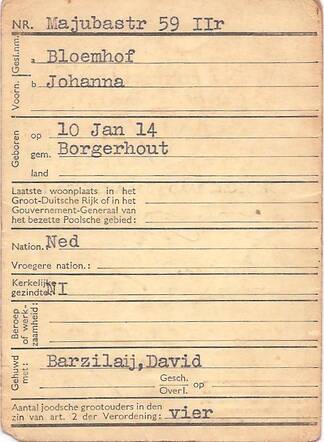 NR. Majubastr 59 IIr
Gesl.nm. a Bloemhof
Voorn. b Johanna
Geboren op 10 Jan 14
gem. Borgerhout
land
Laatste woonplaats in het
Groot-Duitsche Rijk of in het
Gouvernement-Generaal van
het bezette Poolsche gebied:
Nation. Ned
Vroegere nation.:
Kerkelijke
gezindte: NI
Beroep
of werk-
zaamheid:
Gehuwd
met: Barzilaij,David
Gesch.
Overl. op
Aantal joodsche grootouders in den
zin van art. 2 der Verordening: vier